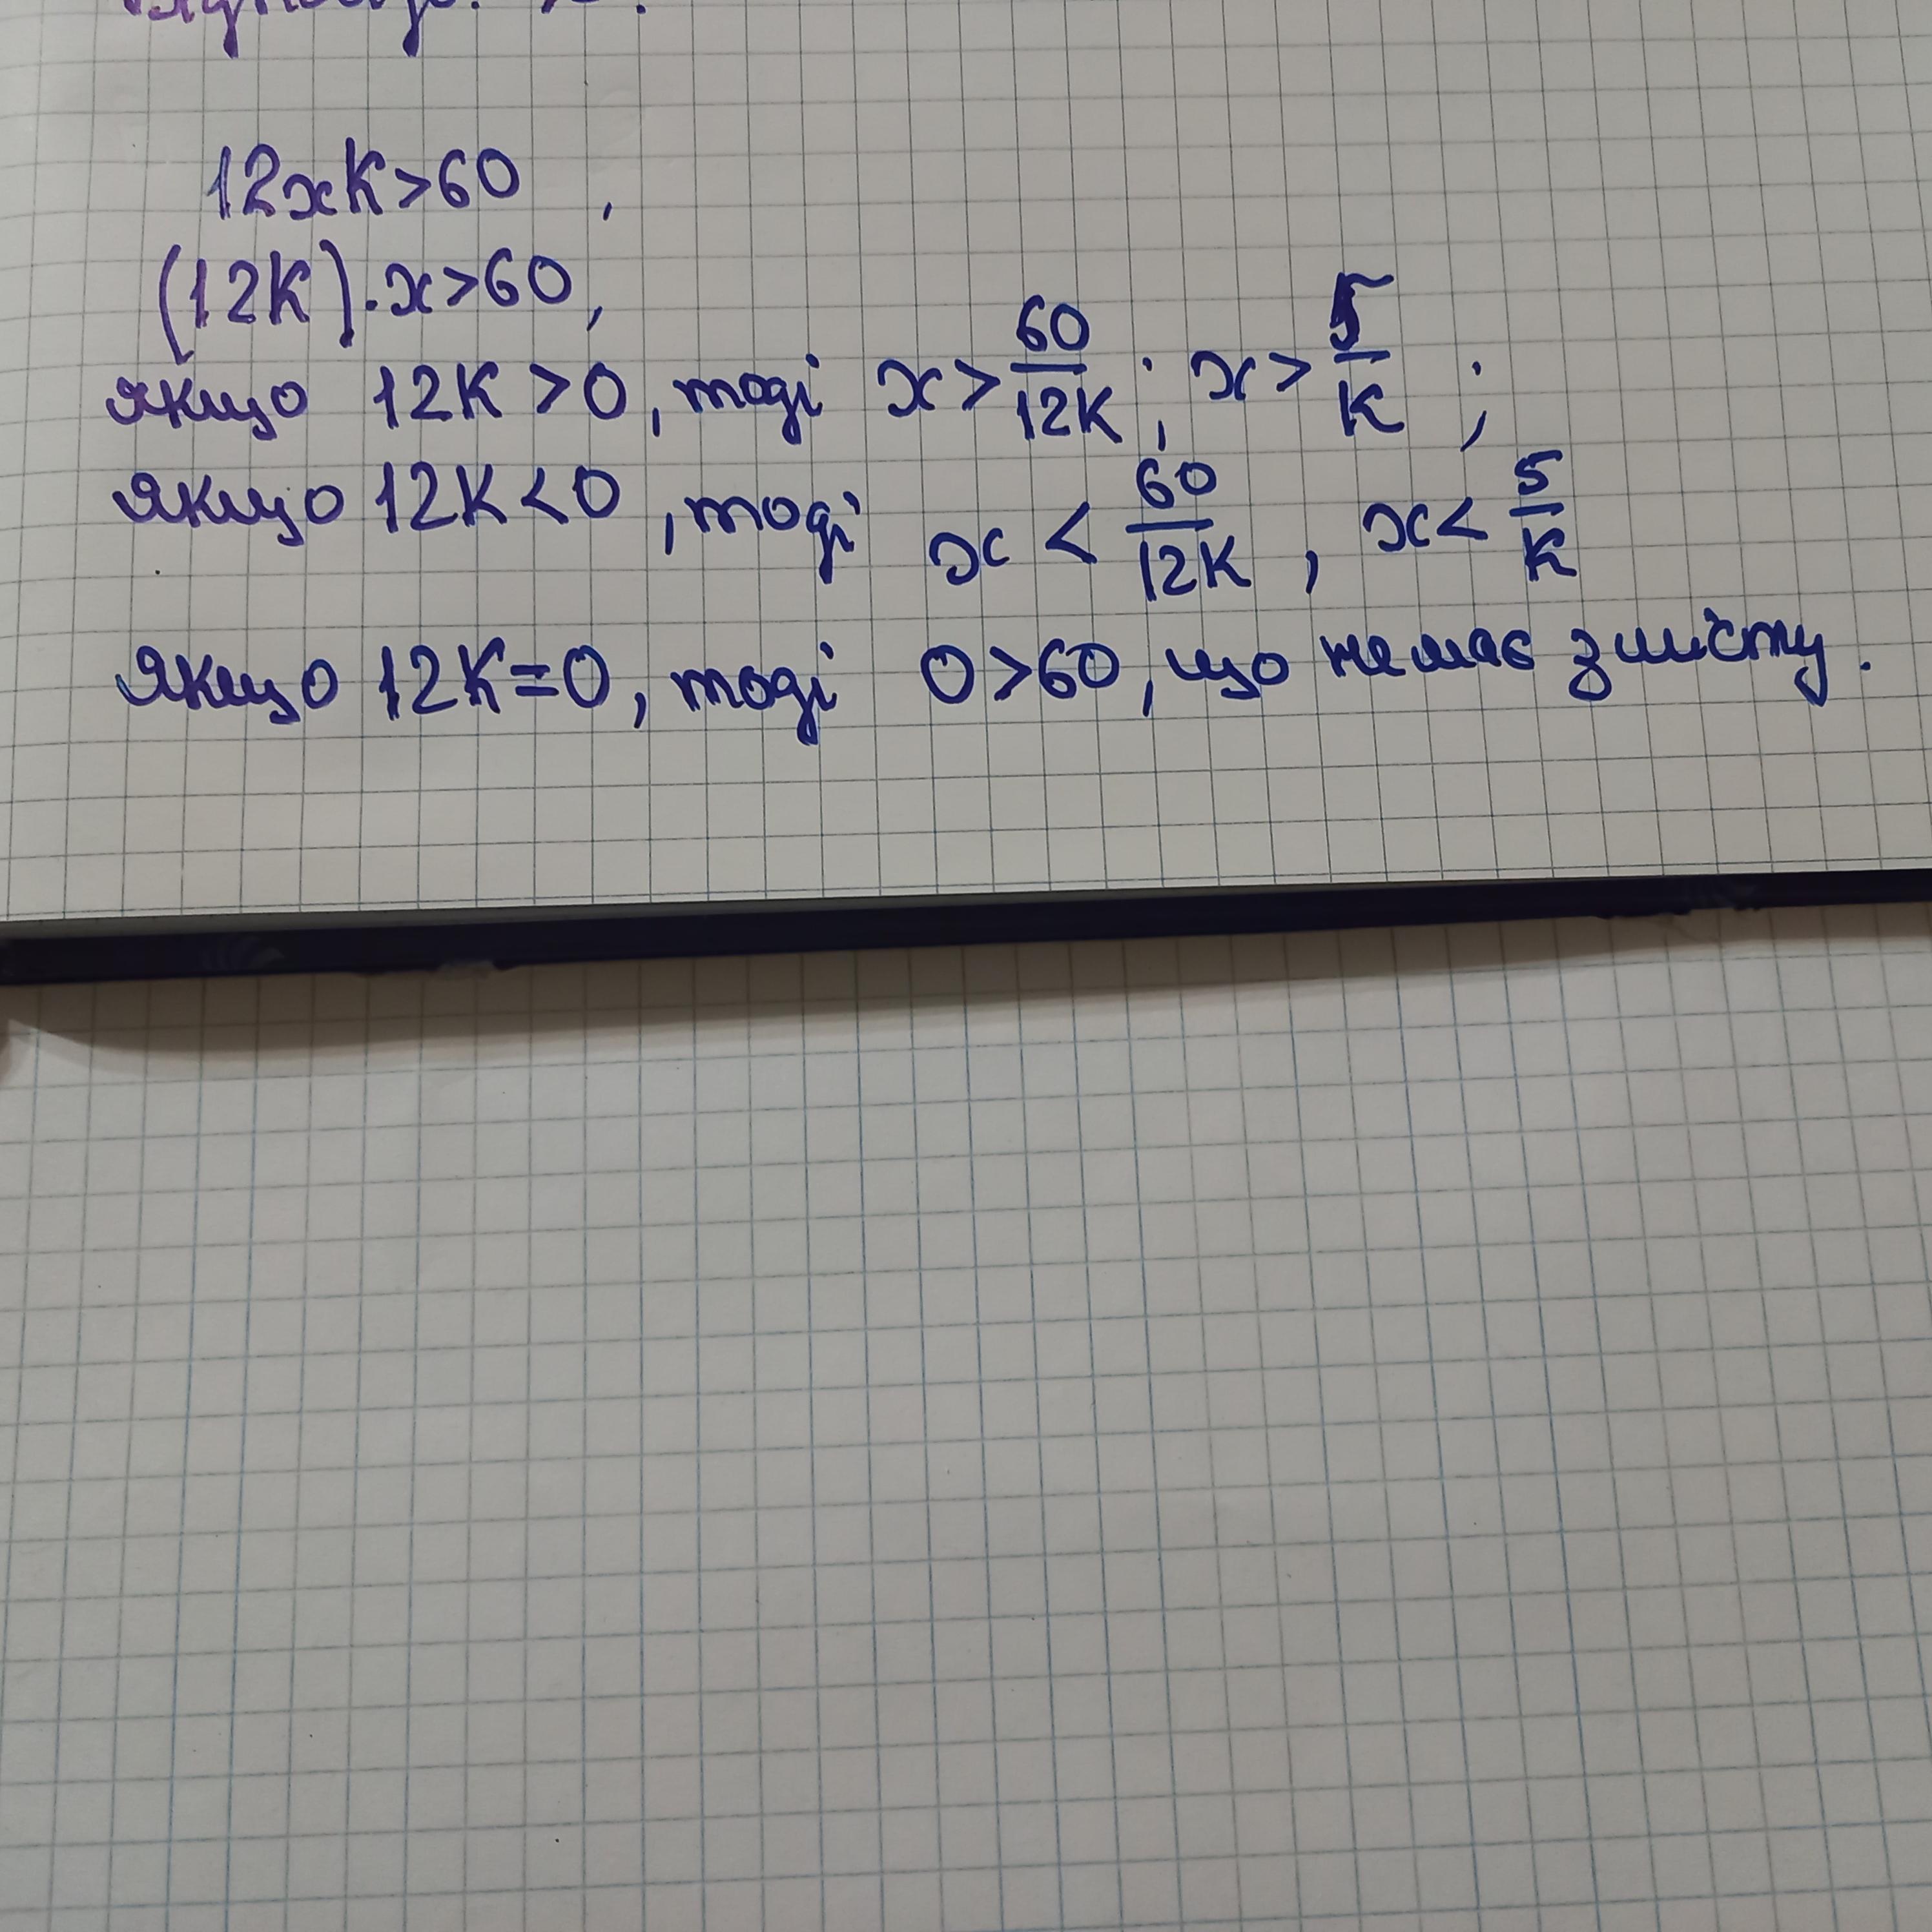 12xK>60,
(12K)·x>60,
якщо 12K>0, тоді x>60/12K; x>5/K;
якщо 12K<0, тоді x<60/12K, x<5/K
якщо 12K=0, тоді 0>60, що не має змісту.